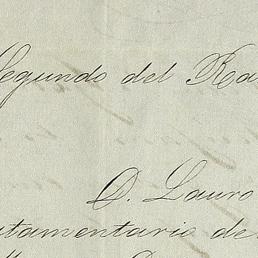 Segundo del Ra
D. Lauro
tamentaria de